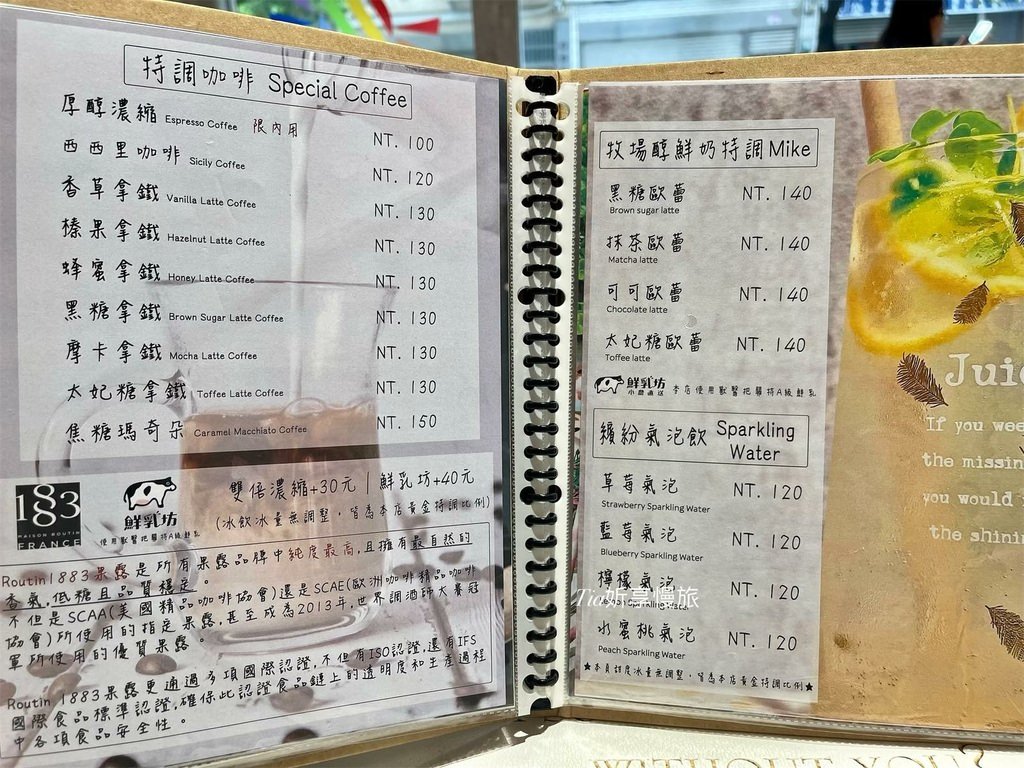 特調咖啡 Special Coffee
厚醇濃縮 Espresso Coffee 限內用 NT. 100
西西里咖啡 Sicily Coffee NT. 120
香草拿鐵 Vanilla Latte Coffee NT. 130
榛果拿鐵 Hazelnut Latte Coffee NT. 130
蜂蜜拿鐵 Honey Latte Coffee NT. 130
黑糖拿鐵 Brown Sugar Latte Coffee NT. 130
摩卡拿鐵 Mocha Latte Coffee NT. 130
太妃糖拿鐵 Toffee Latte Coffee NT. 130
焦糖瑪奇朵 Caramel Macchiato Coffee NT. 150
1883
MAISON ROUTIN
FRANCE
鮮乳坊
使用獸醫把關特A級鮮乳
雙倍濃縮+30元 | 鮮乳坊+40元
(冰飲冰量無調整，皆為本店黃金特調比例)
Routin 1883果露是所有果露品牌中純度最高,且擁有最自然的
香氣,低糖且品質穩定。
不但是SCAA(美國精品咖啡協會)還是SCAE(歐洲咖啡精品咖啡
協會)所使用的指定果露,甚至成為2013年,世界調酒師大賽冠
軍所使用的優質果露。
Routin 1883果露更通過多項國際認證,不但有ISO認證,還有IFS
國際食品標準認證,確保此認證食品鏈上的透明度和生產過程
中各項食品安全性。
牧場醇鮮奶特調Mike
黑糖歐蕾 NT. 140
Brown sugar latte
抹茶歐蕾 NT. 140
Matcha latte
可可歐蕾 NT. 140
Chocolate latte
太妃糖歐蕾 NT. 140
Toffee latte
鮮乳坊
小農直送
本店使用獸醫把關特A級鮮乳
繽紛氣泡飲 Sparkling
Water
草莓氣泡 NT. 120
Strawberry Sparkling Water
藍莓氣泡 NT. 120
Blueberry Sparkling Water
檸檬氣泡 NT. 120
Sparkling Water
水蜜桃氣泡 NT. 120
Peach Sparkling Water
★本頁甜度冰量無調整，皆為本店黃金特調比例★
Tia妡享慢旅
If you
the
you would
the
WITHOUT YOU?